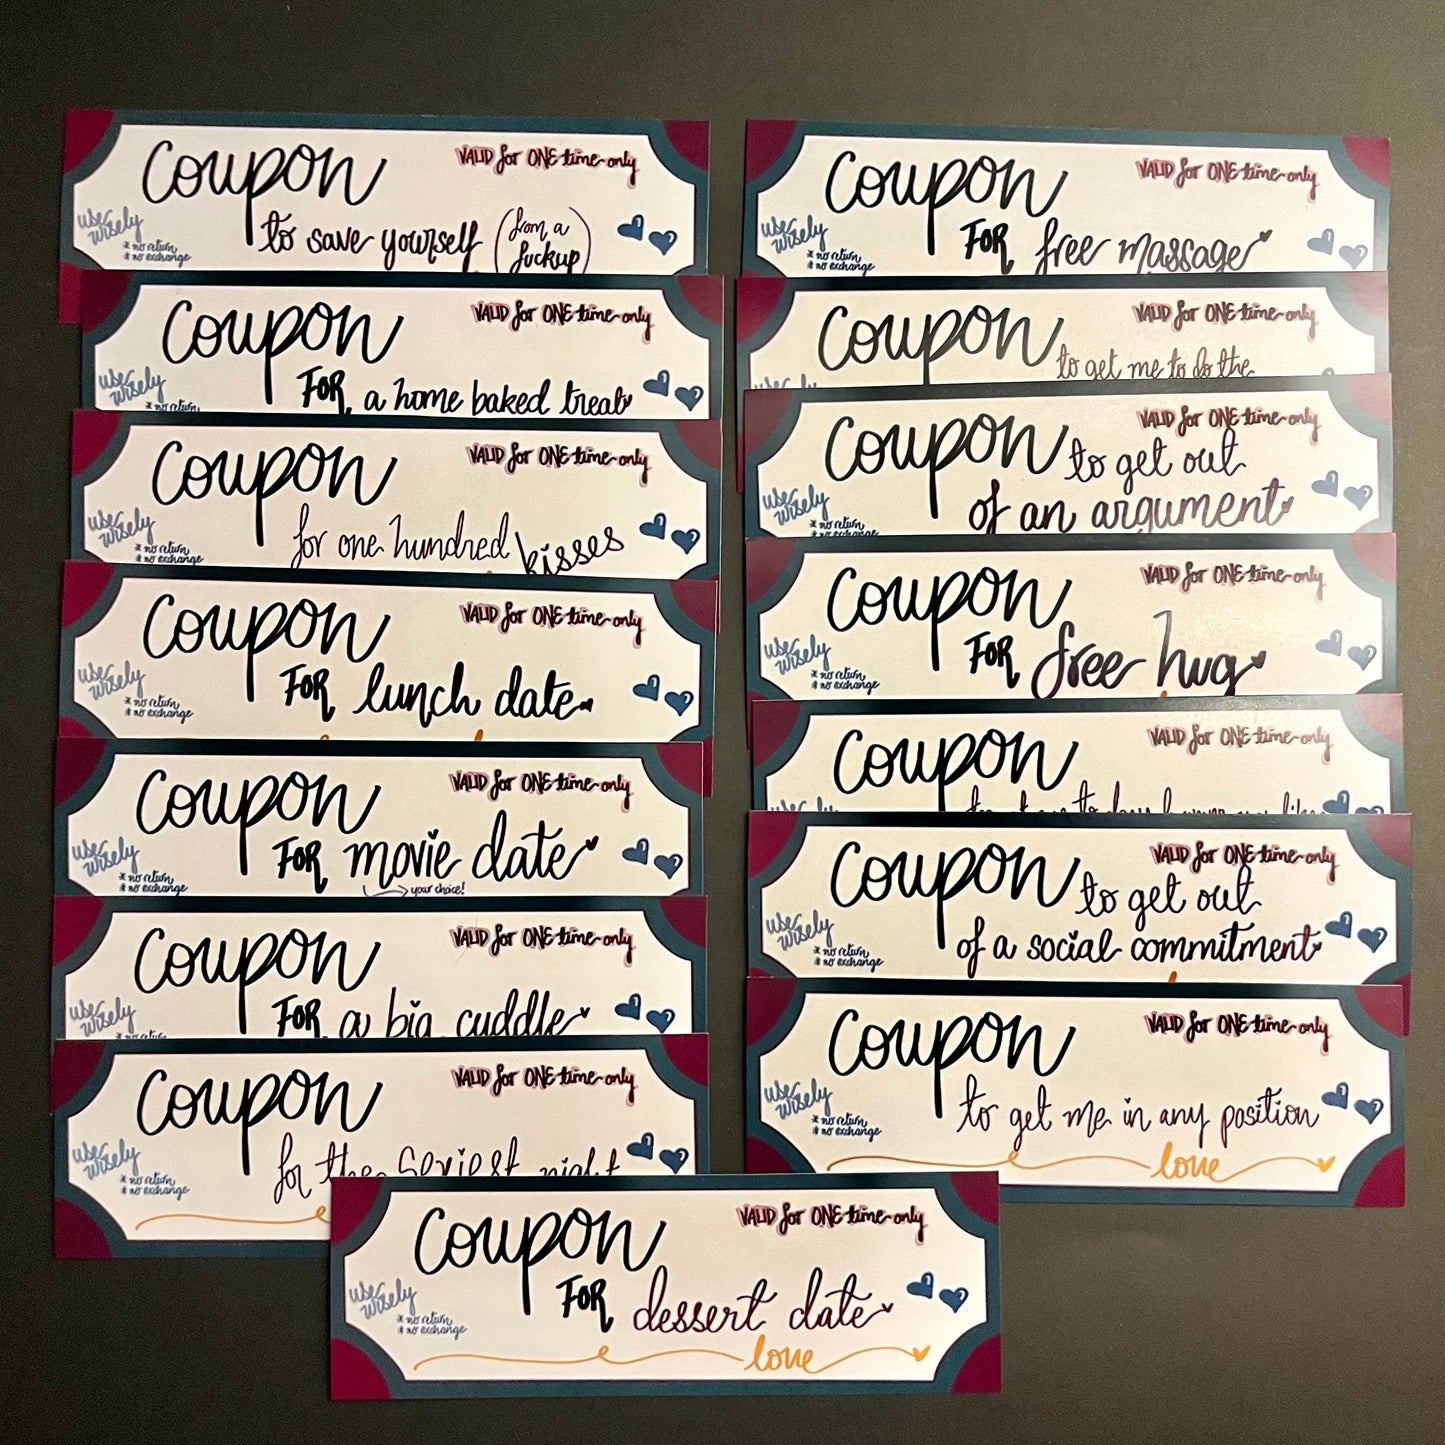 Coupon
VALID for ONE time only
to save yourself (from a fuckup)
use wisely
* no return
* no exchange
Coupon
VALID for ONE time only
FOR a home baked treat
use wisely
* no return
Coupon
VALID for ONE time only
for one hundred kisses
use wisely
* no return
* no exchange
Coupon
VALID for ONE time only
FOR lunch date
use wisely
* no return
* no exchange
Coupon
VALID for ONE time only
FOR movie date
your choice!
use wisely
* no return
* no exchange
Coupon
VALID for ONE time only
FOR a big cuddle
use wisely
* no return
Coupon
VALID for ONE time only
for the sexiest night
use wisely
* no return
* no exchange
Coupon
VALID for ONE time only
FOR free massage
use wisely
* no return
* no exchange
Coupon
VALID for ONE time only
to get me to do the
use
Coupon
VALID for ONE time only
to get out
of an argument
use wisely
* no return
* no exchange
Coupon
VALID for ONE time only
FOR free hug
use wisely
* no return
* no exchange
Coupon
VALID for ONE time only
use
Coupon
VALID for ONE time only
to get out
of a social commitment
use wisely
* no return
* no exchange
Coupon
VALID for ONE time only
to get me in any position
use wisely
* no return
* no exchange
love
Coupon
VALID for ONE time only
FOR dessert date
use wisely
* no return
* no exchange
love